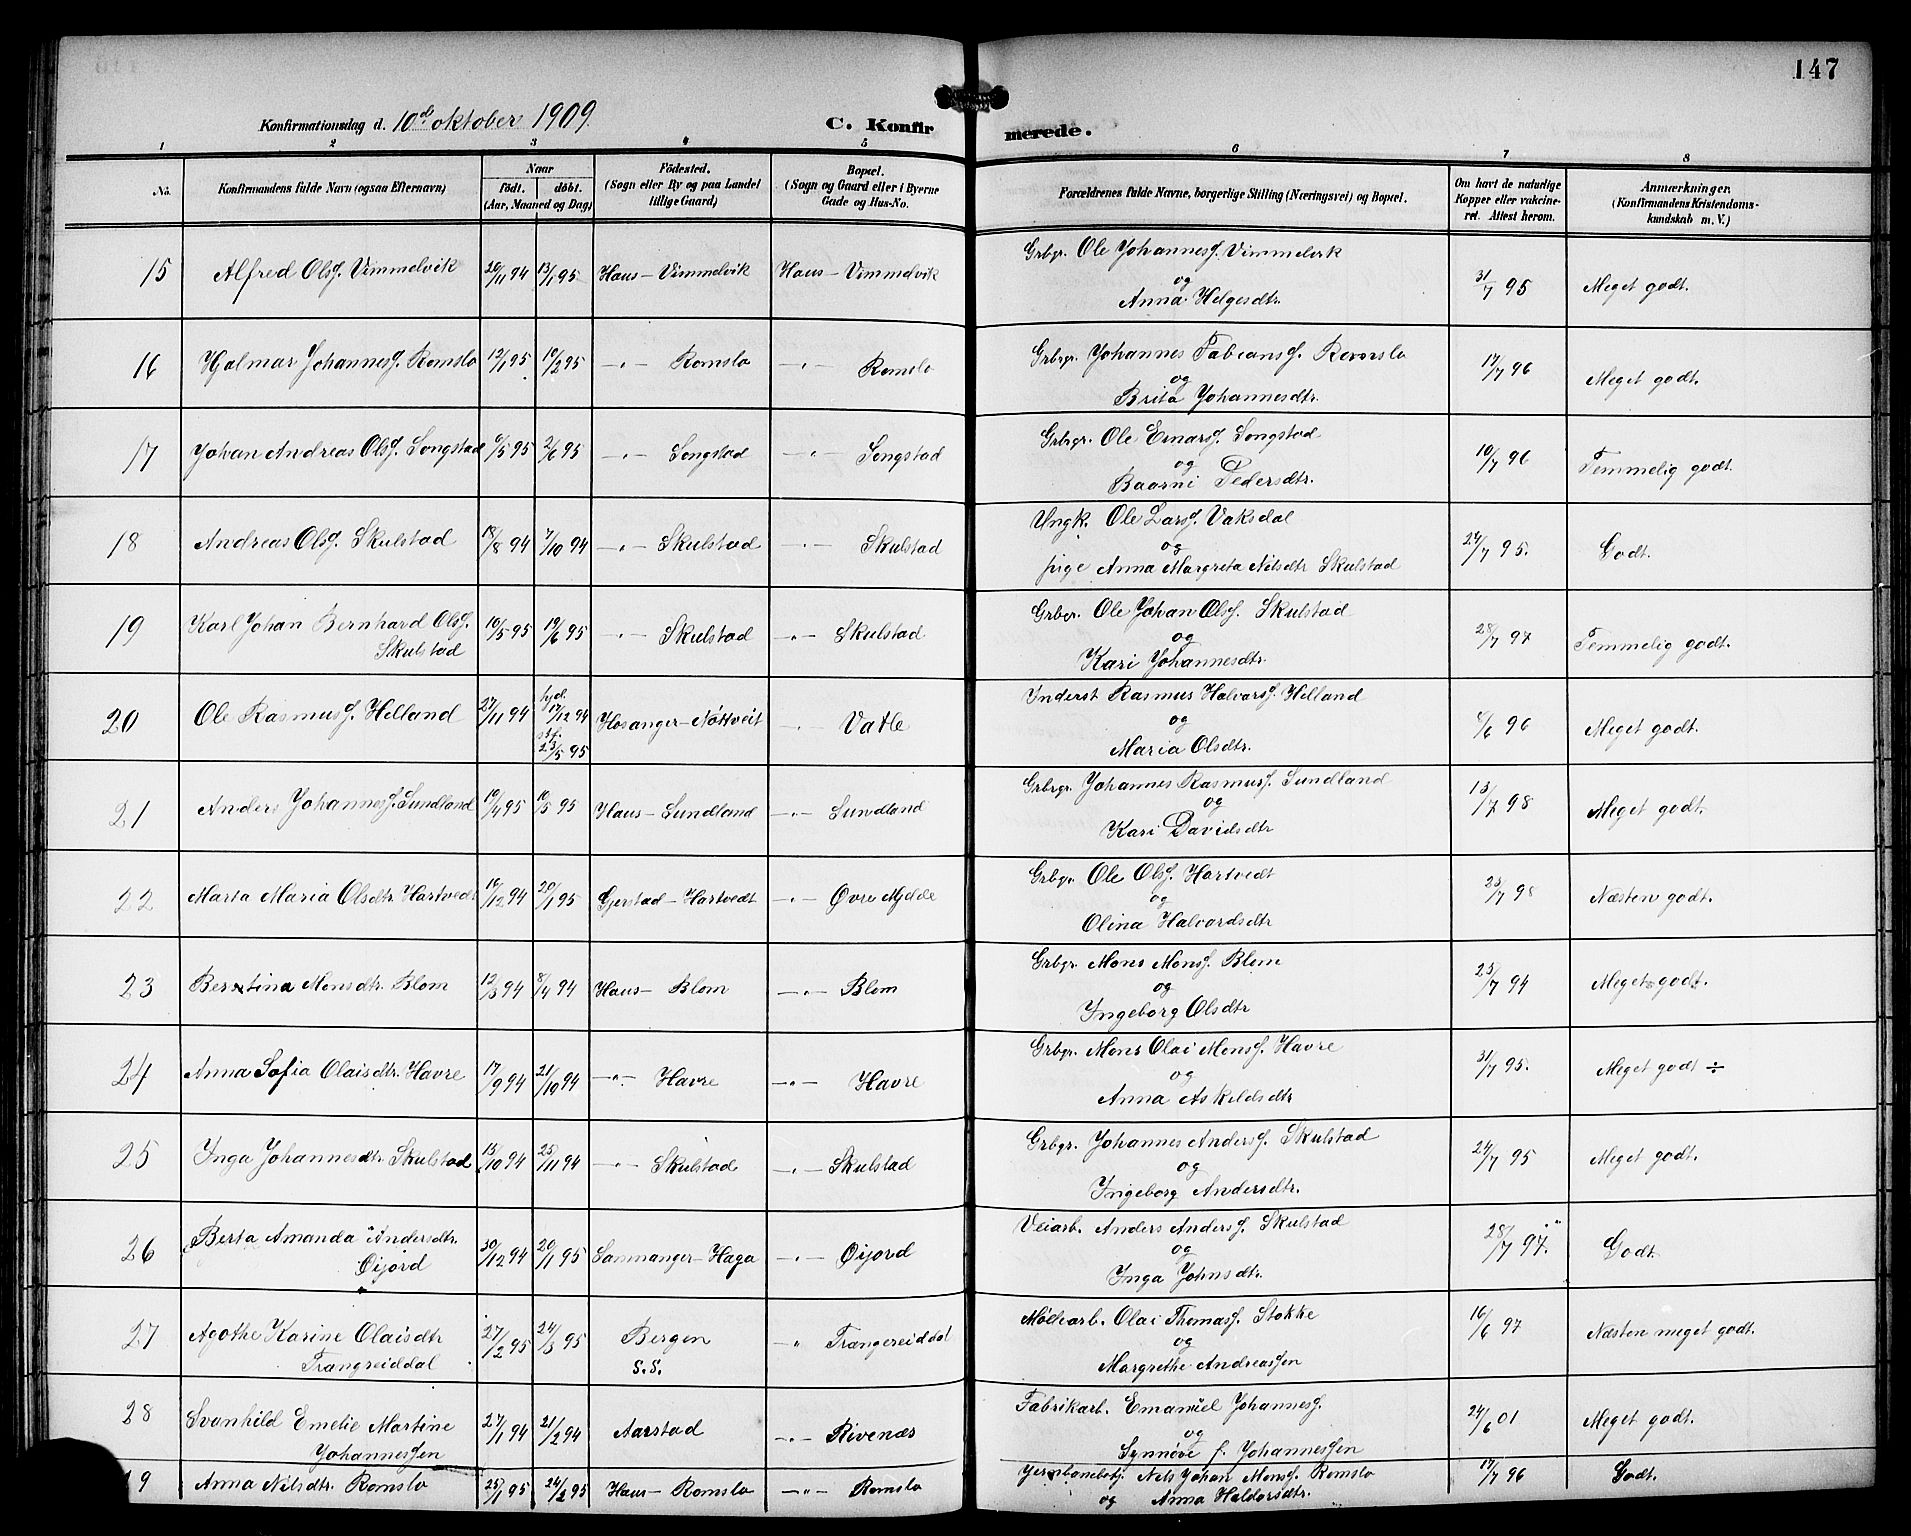 147
Konfirmationsdag d. 10d oktober 1909. C. Konfirmerede.
1 2 3 4 5 6 7 8
No. Konfirmandens fulde Navn (ogsaa Efternavn) Naar födt. döbt. (Aar, Maaned og Dag) Födested. (Sogn eller By og paa Landet tillige Gaard) Bopæl. (Sogn og Gaard eller i Byerne Gade og Hus-No. Forældrenes fulde Navne, borgerlige Stilling (Næringsvei) og Bopæl. Om havt de naturlige Kopper eller vaccineret. Attest herom. Anmærkninger. (Konfirmandens Kristendomskundskab m. V.)
15 Alfred Olsf. Vimmelvik 20/11 94 13/1 95 Haus - Vimmelvik Haus - Vimmelvik Grbgr. Ole Johannesf. Vimmelvik
og
Anna Helgesdtr. 31/7 95 Meget godt.
16 Hjalmar Johannesf. Romslo 12/1 95 10/2 95 -"- Romslo -"- Romslo Grbgr. Johannes Fabiansf. Romslo
og
Brita Johannesdtr. 17/7 96 Meget godt.
17 Johan Andreas Olsf. Songstad 6/5 95 2/6 95 -"- Songstad -"- Songstad Grbgr. Ole Einarsf. Songstad
og
Baarni Pedersdtr. 10/7 96 Temmelig godt.
18 Andreas Olsf. Skulstad 18/8 94 7/10 94 -"- Skulstad -"- Skulstad Ungk. Ole Larsf. Vaksdal
og
pige Anna Margreta Nilsdtr Skulstad 24/7 95. Godt.
19 Karl Johan Bernhard Olsf.
Skulstad 10/5 95 19/6 95 -"- Skulstad -"- Skulstad Grbgr. Ole Johan Olsf. Skulstad
og
Kari Johannesdtr. 28/7 97 Temmelig godt.
20 Ole Rasmusf. Helland 27/11 94 hjd. 17/12 94 stf. 23/5 95 Hosanger - Nöttveit -"- Vatle Inderst Rasmus Halvarsf. Helland
og
Maria Olsdtr. 6/6 96 Meget godt.
21 Anders Johannesf. Sundland 19/4 95 10/5 95 Haus - Sundland -"- Sundland Grbrgr. Johannes Rasmusf. Sundland
og
Kari Davidsdtr 13/7 98 Meget godt.
22 Marta Maria Olsdtr. Hartvedt 16/12 94 20/1 95 Gjerstad - Hartvedt -"- Øvre Mjelde Grbgr. Ole Olsf. Hartvedt
og
Olina Halvordsdtr 23/7 98 Næsten godt.
23 Berntina Monsdtr. Blom 12/3 94 8/4 94 Haus - Blom -"- Blom Grbgr. Mons Monsf. Blom
og
Ingeborg Olsdtr 25/7 94 Meget godt.
24 Anna Sofia Olaisdtr. Havre 17/9 94 21/10 94 -"- Havre -"- Havre Grbgr. Mons Olai Monsf. Havre
og
Anna Askeldsdtr 31/7 95. Meget godt ÷
25 Inga Johannesdtr. Skulstad 15/10 94 25/11 94 -"- Skulstad -"- Skulstad Grbgr. Johannes Andersf. Skulstad
og
Ingeborg Andersdtr. 24/7 95 Meget godt.
26 Berta Amanda Andersdtr.
Öijord 30/12 94 20/1 95 Samnanger - Haga -"- Øijord Veiarb. Anders Andersf. Skulstad
og
Inga Johnsdtr. 28/7 97. Godt.
27 Agothe Karine Olaisdtr
Trangreiddal 27/2 95 24/3 95 Bergen
S.S. -"- Trangereiddal Mödearb. Olai Thomasf. Stokke
og
Margrethe Andreassen 16/6 97 Næsten meget godt.
28 Svanhild Emelie Martine
Johannessen 27/1 94 21/2 94 Aarstad -"- Rivenæs Fabrikarb. Emanuel Johannesf.
og
Synnöve f. Johannessen 24/6 01 Meget godt.
9 Anna Nilsdtr. Romslo 25/1 95 24/2 95 Haus - Romslo -"- Romslo Jernbanebetj. Nils Johan Monsf. Romslo
og Anna Haldorsdtr. 17/7 96 Godt.